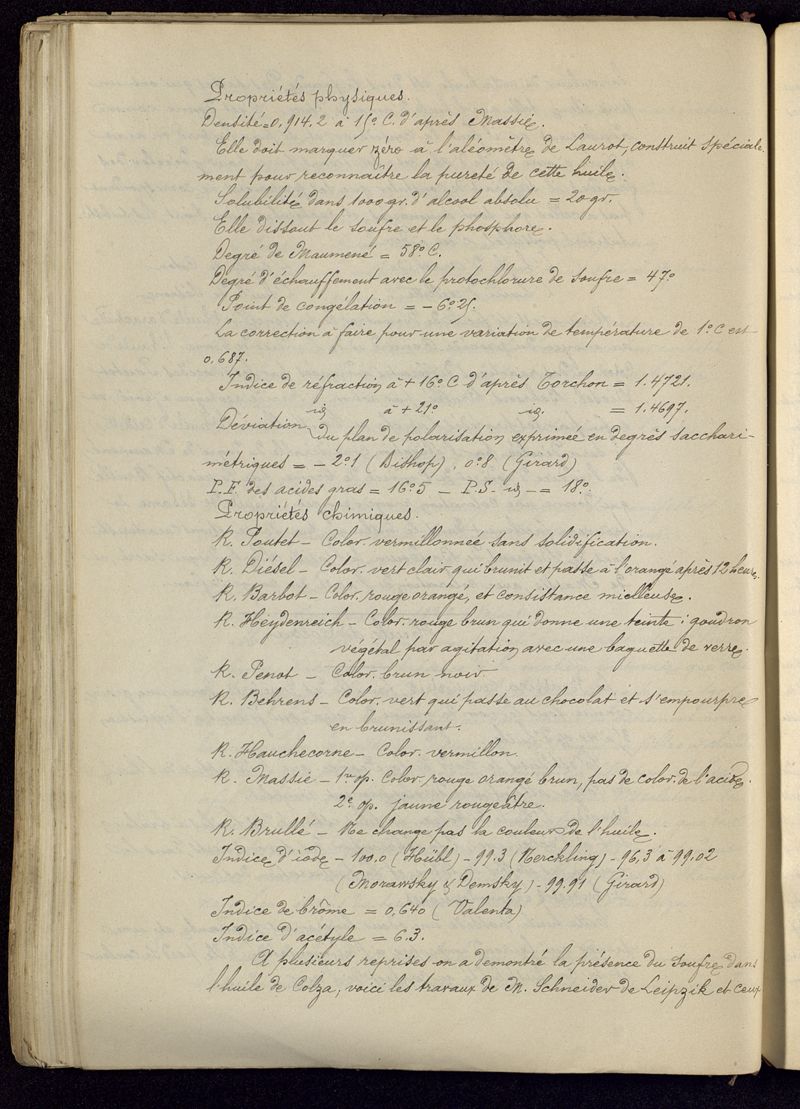 Propriétés physiques.
Densité = 0,914.2 à 15° C. d'après Massie.
Elle doit marquer zéro à l'aléomètre de Laurot, construit spéciale-
ment pour reconnaître la pureté de cette huile.
Solubilité dans 1000 gr. d'alcool absolu = 20 gr.
Elle dissout le soufre et le phosphore.
Degré de Maumené = 58° C.
Degré d'échauffement avec le protochlorure de soufre = 47°
Point de congélation = - 6°25.
La correction à faire pour une variation de température de 1° C est
0,687.
Indice de réfraction à + 16° C d'après Torchon = 1.4721.
id à + 21° id. = 1.4697.
Déviation du plan de polarisation exprimée en degrés sacchari-
métriques = - 2°1 (Bishop), 0°8 (Girard)
P.F. des acides gras = 16°5 - P.S. id - = 18°.
Propriétés chimiques.
R. Poutet - Color. vermillonnée sans solidification.
R. Diésel - Color. vert clair qui brunit et passe à l'orangé après 12 heures.
R. Barbot - Color. rouge orangé, et consistance mielleuse.
R. Heydenreich - Color. rouge brun qui donne une teinte : goudron
végétal par agitation avec une baguette de verre.
R. Penot - Color. brun noir
R. Behrens - Color. vert qui passe au chocolat et s'empourpre
en brunissant.
R. Hauchecorne - Color. vermillon.
R. Massie - 1re op. Color. rouge orangé brun, pas de color. de l'acide.
2e op. jaune rougeâtre.
R. Brullé - Ne change pas la couleur de l'huile.
Indice d'iode - 100,0 (Hübl) - 99.3 (Merckling) - 96,3 à 99.02
(Morawsky & Demsky) - 99.91 (Girard)
Indice de brôme = 0,640 (Valenta)
Indice d'acétyle = 6.3.
A plusieurs reprises on a demontré la présence du soufre dans
l'huile de Colza, voici les travaux de M. Schneider de Leipzik et ceux